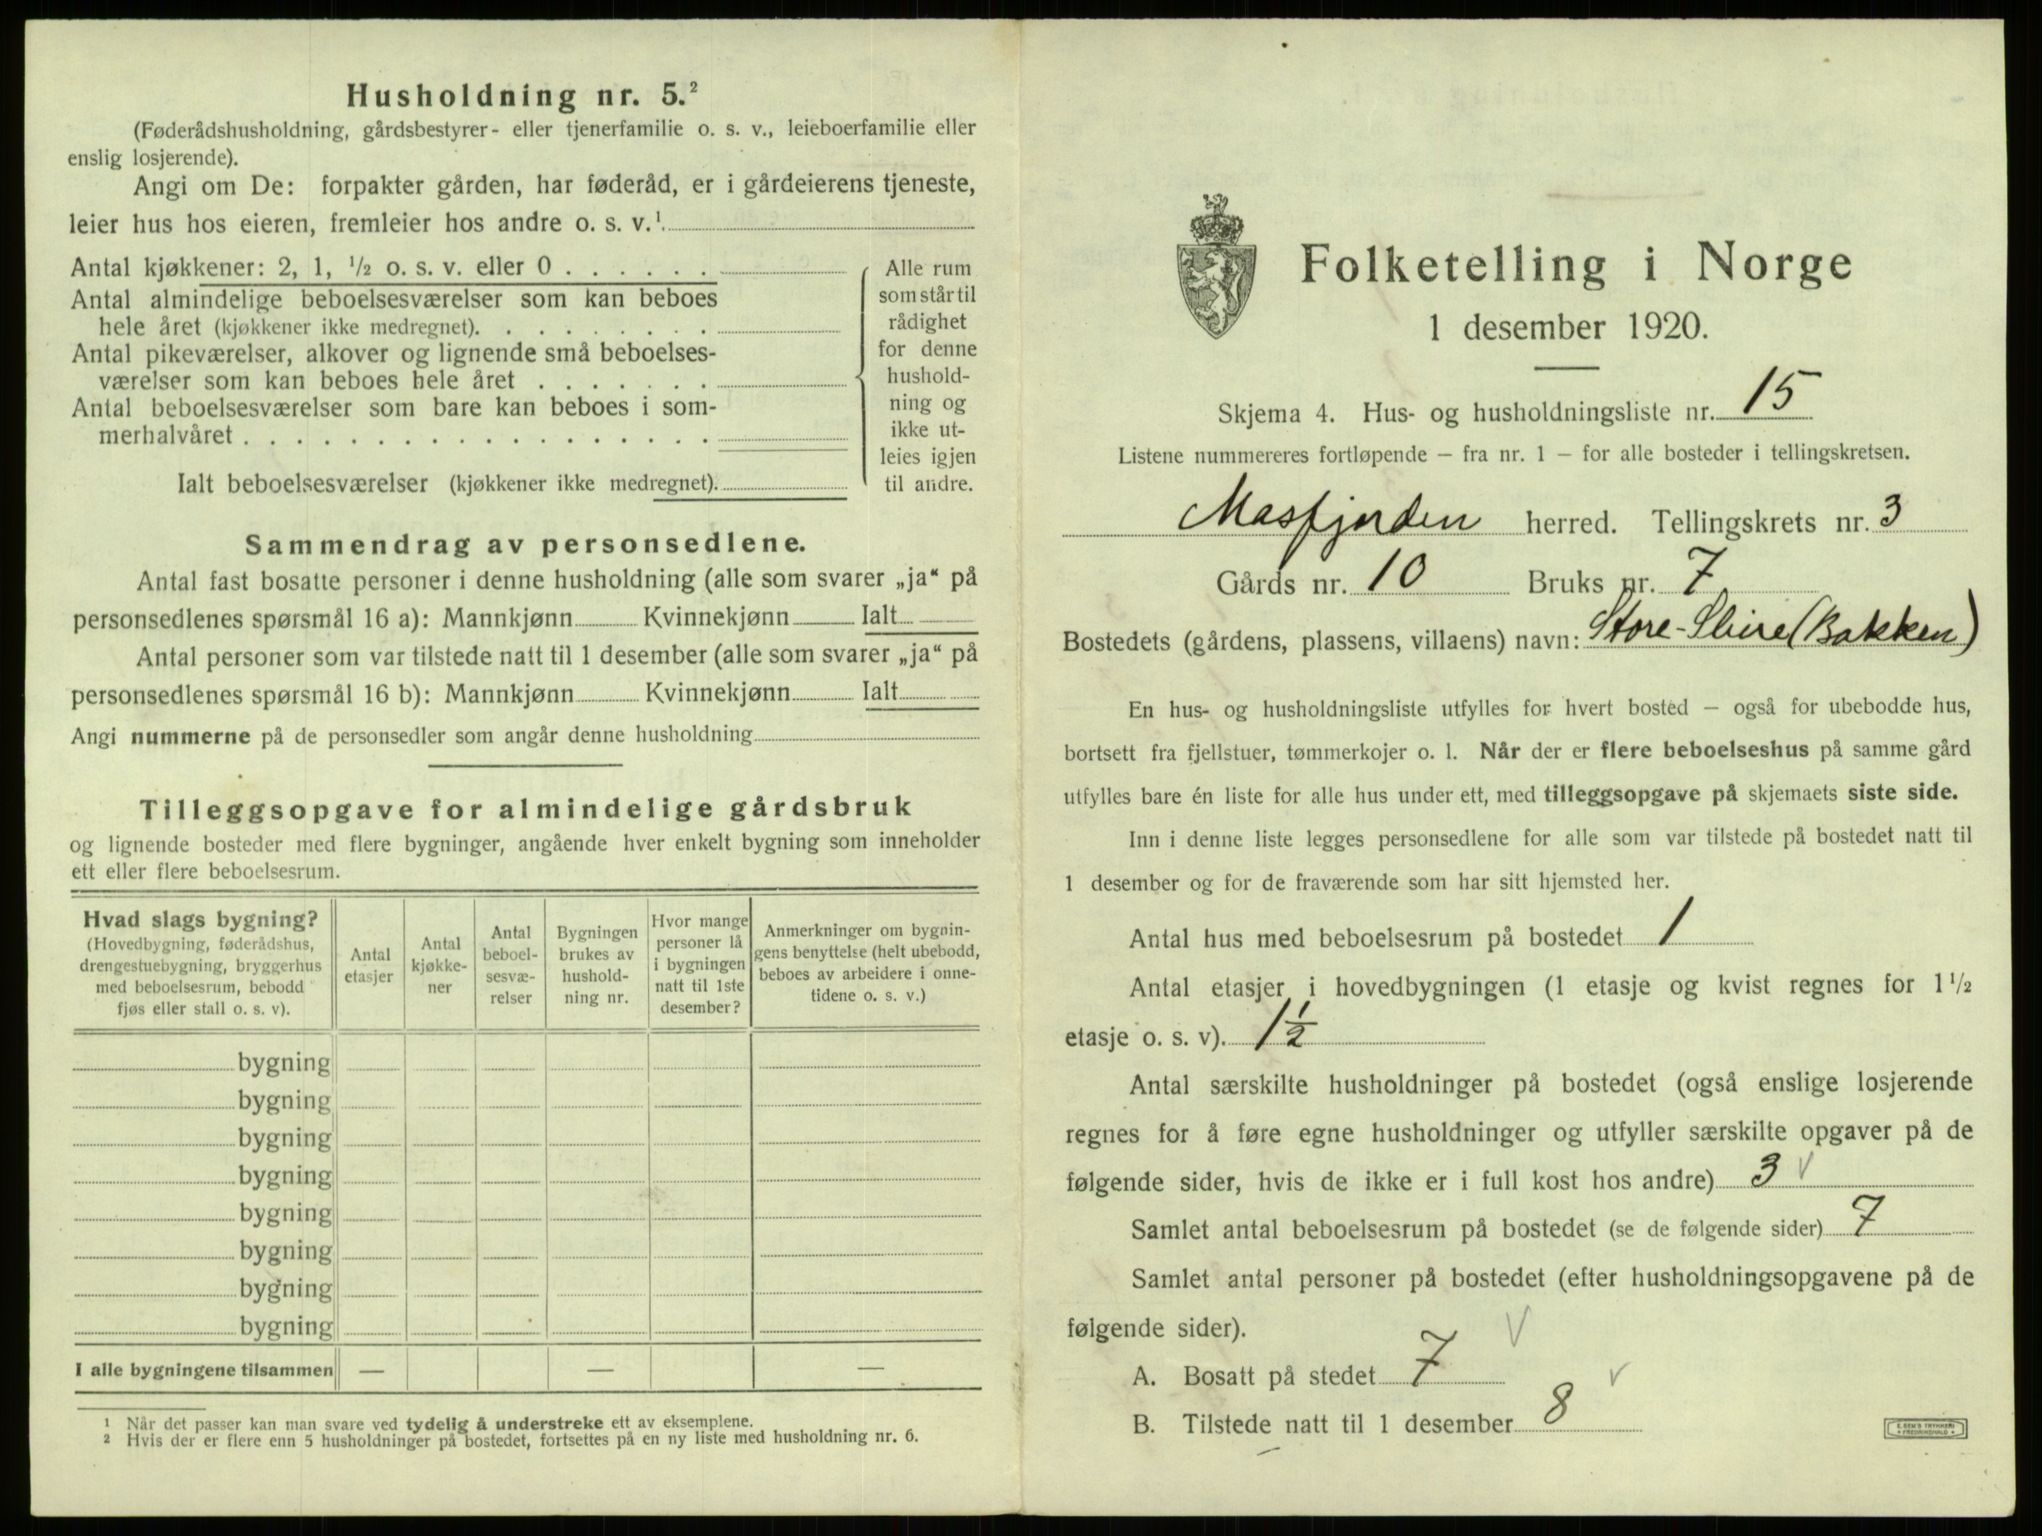 Husholdning nr. 5.²
(Føderådshusholdning, gårdsbestyrer- eller tjenerfamilie o. s. v., leieboerfamilie eller
enslig losjerende).
Angi om De: forpakter gården, har føderåd, er i gårdeierens tjeneste,
leier hus hos eieren, fremleier hos andre o. s. v.¹
Antal kjøkkener: 2, 1, ½ o. s. v. eller 0 . . . . . .
Antal almindelige beboelsesværelser som kan beboes
hele året (kjøkkener ikke medregnet). . . . . . . . .
Antal pikeværelser, alkover og lignende små beboelses-
værelser som kan beboes hele året . . . . . . .
Antal beboelsesværelser som bare kan beboes i som-
merhalvåret . . . . . . . . . . . . . . . . . .
Ialt beboelsesværelser (kjøkkener ikke medregnet).
Alle rum
som står til
rådighet
for denne
hushold-
ning og
ikke ut-
leies igjen
til andre.
Sammendrag av personsedlene.
Antal fast bosatte personer i denne husholdning (alle som svarer „ja“ på
personsedlenes spørsmål 16 a): Mannkjønn Kvinnekjønn Ialt
Antal personer som var tilstede natt til 1 desember (alle som svarer „ja“ på
personsedlenes spørsmål 16 b): Mannkjønn Kvinnekjønn Ialt
Angi nummerne på de personsedler som angår denne husholdning
Tilleggsopgave for almindelige gårdsbruk
og lignende bosteder med flere bygninger, angående hver enkelt bygning som inneholder
ett eller flere beboelsesrum.
Hvad slags bygning?
(Hovedbygning, føderådshus,
drengestuebygning, bryggerhus
med beboelsesrum, bebodd
fjøs eller stall o. s. v).
Antal
etasjer
Antal
kjøkke-
ner
Antal
beboel-
sesvæ-
relser
Bygningen
brukes av
hushold-
ning nr.
Hvor mange
personer lå
i bygningen
natt til 1ste
desember?
Anmerkninger om bygnin-
gens benyttelse (helt ubebodd,
beboes av arbeidere i onne-
tidene o. s. v.)
bygning
bygning
bygning
bygning
bygning
bygning
bygning
bygning
I alle bygningene tilsammen — — —
¹ Når det passer kan man svare ved tydelig å understreke ett av eksemplene.
² Hvis der er flere enn 5 husholdninger på bostedet, fortsettes på en ny liste med husholdning nr. 6.
Folketelling i Norge
1 desember 1920.
Skjema 4. Hus- og husholdningsliste nr. 15
Listene nummereres fortløpende – fra nr. 1 – for alle bosteder i tellingskretsen.
Masfjorden herred. Tellingskrets nr. 3
Gårds nr. 10 Bruks nr. 7
Bostedets (gårdens, plassens, villaens) navn: Store- (Bakken)
En hus- og husholdningsliste utfylles for hvert bosted – også for ubebodde hus,
bortsett fra fjellstuer, tømmerkojer o. l. Når der er flere beboelseshus på samme gård
utfylles bare én liste for alle hus under ett, med tilleggsopgave på skjemaets siste side.
Inn i denne liste legges personsedlene for alle som var tilstede på bostedet natt til
1 desember og for de fraværende som har sitt hjemsted her.
Antal hus med beboelsesrum på bostedet 1
Antal etasjer i hovedbygningen (1 etasje og kvist regnes for 1 ½
etasje o. s. v). 1 ½
Antal særskilte husholdninger på bostedet (også enslige losjerende
regnes for å føre egne husholdninger og utfyller særskilte opgaver på de
følgende sider, hvis de ikke er i full kost hos andre) 3 v
Samlet antal beboelsesrum på bostedet (se de følgende sider) 7
Samlet antal personer på bostedet (efter husholdningsopgavene på de
følgende sider). v
A. Bosatt på stedet 7 v
B. Tilstede natt til 1 desember 8
E. SEM'S TRYKKERI
FREDRIKSHALD